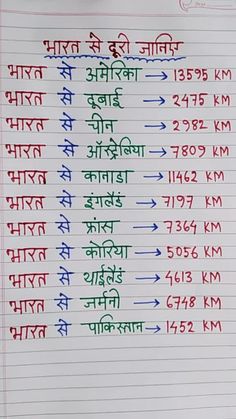 भारत से दूरी जानिए
भारत से अमेरिका → 13595 KM
भारत से दूबाई → 2475 KM
भारत से चीन → 2982 KM
भारत से ऑस्ट्रेलिया → 7809 KM
भारत से कानाडा → 11462 KM
भारत से इंगलैंड → 7197 KM
भारत से फ्रांस → 7364 KM
भारत से कोरिया → 5056 KM
भारत से थाईलैंड → 4613 KM
भारत से जर्मनी → 6748 KM
भारत से पाकिस्तान → 1452 KM